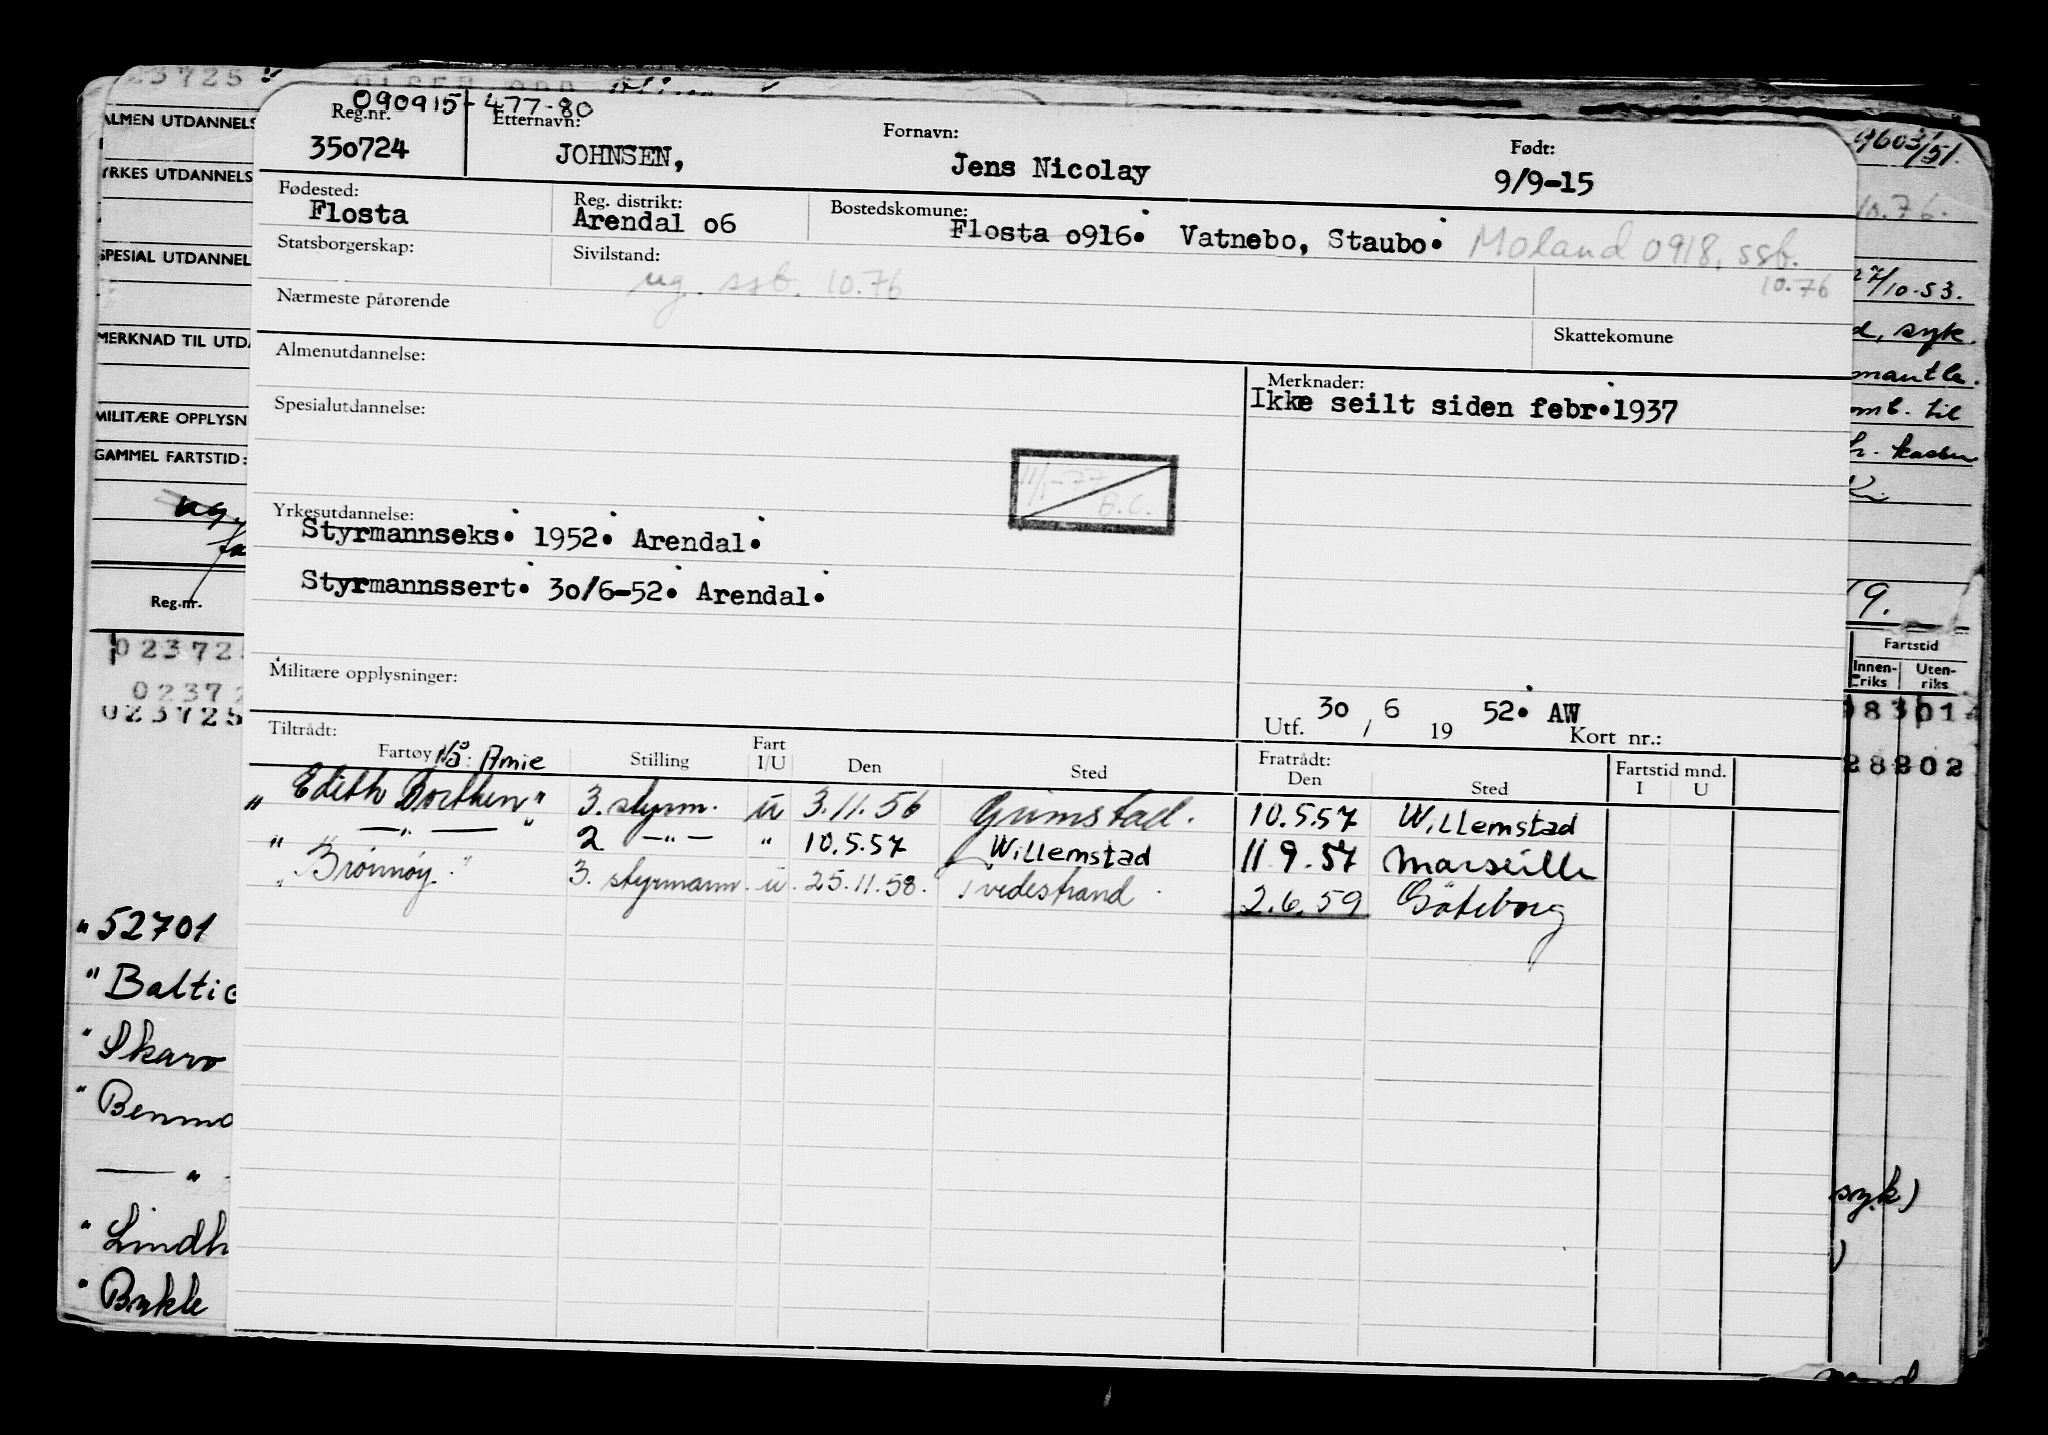 023725
090915-477-80
Reg.nr. Etternavn: Fornavn: Født:
350724 JOHNSEN, Jens Nicolay 9/9-15
Fødested: Reg. distrikt: Bostedskomune:
Flosta Arendal o6 Flosta o916. Vatnebo, Staubo. Moland 0918, ssb.
10.76
Statsborgerskap: Sivilstand:
ug. ssb. 10.76
Nærmeste pårørende
Skattekomune
Almenutdannelse:
Merknader:
Ikke seilt siden febr.1937
Spesialutdannelse:
11/1-77
B.C.
Yrkesutdannelse:
Styrmannseks. 1952. Arendal.
Styrmannssert. 30/6-52. Arendal.
Militære opplysninger:
Utf. 30 / 6 19 52. AW Kort nr.:
Tiltrådt: Fratrådt: Fartstid mnd.
Fartøy Stilling Fart I/U Den Sted Den Sted I U
Nå: Amie
" Edith Borthen" 3. styrm. u 3.11.56 Grimstad. 10.5.57 Willemstad
" —"— " 2 —"— " 10.5.57 Willemstad 11.9.57 Marseille
" Brönnöy" 3. styrmann. u. 25.11.58. Tvedestrand. 2.6.59 Göteborg
ALMEN UTDANNELS
YRKES UTDANNELS
SPESIAL UTDANNEL
MERKNAD TIL UTDA
MILITÆRE OPPLYSN
GAMMEL FARTSTID:
ug.
Reg.nr.
02372
02372
023725
" 52701
" Baltic
" Skaro
" Benmo
— " —
" Lindh
" Bykle
9603/51.
10.76.
27/10-53.
d, syk.
mantle.
omb. til
19.
Fartstid
Innen- Uten-
riks riks
syk)